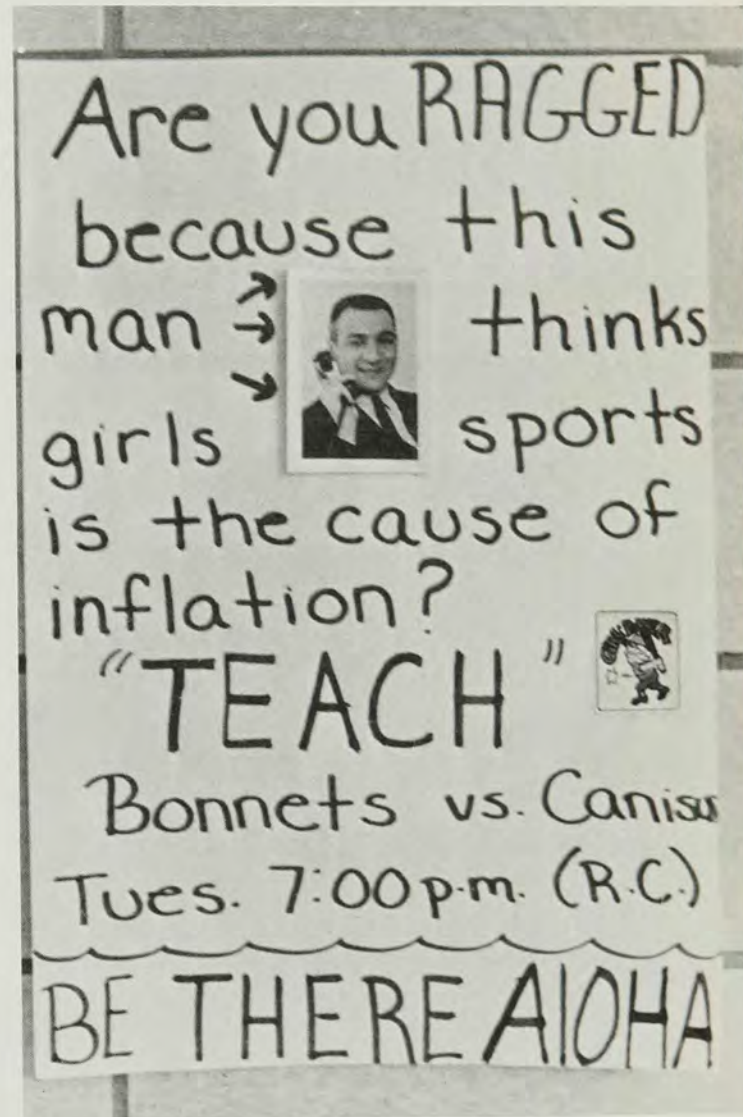 Are you RAGGED
because this
man thinks
girls sports
is the cause of
inflation?
"TEACH"
Bonnets vs. Canisus
Tues. 7:00 p.m. (R.C.)
BE THERE AlOHA